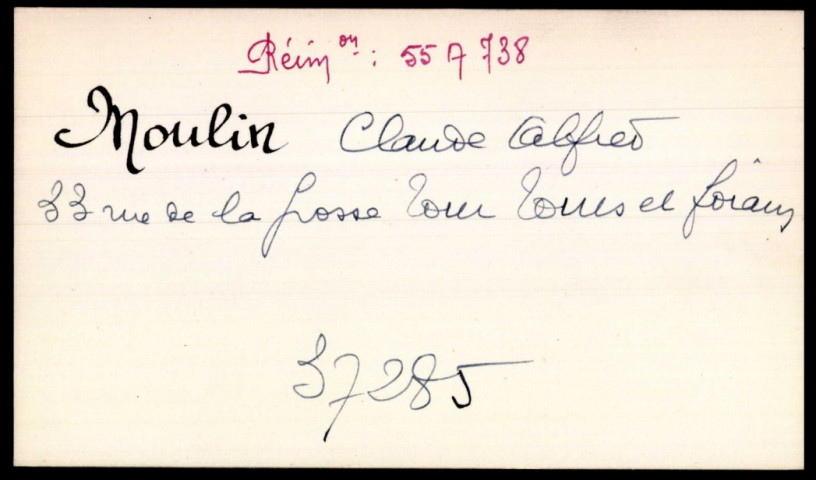 Réim^on : 55 A 738
Moulin Claude Alfred
33 rue de la Grosse Tour Tours et forains
37285